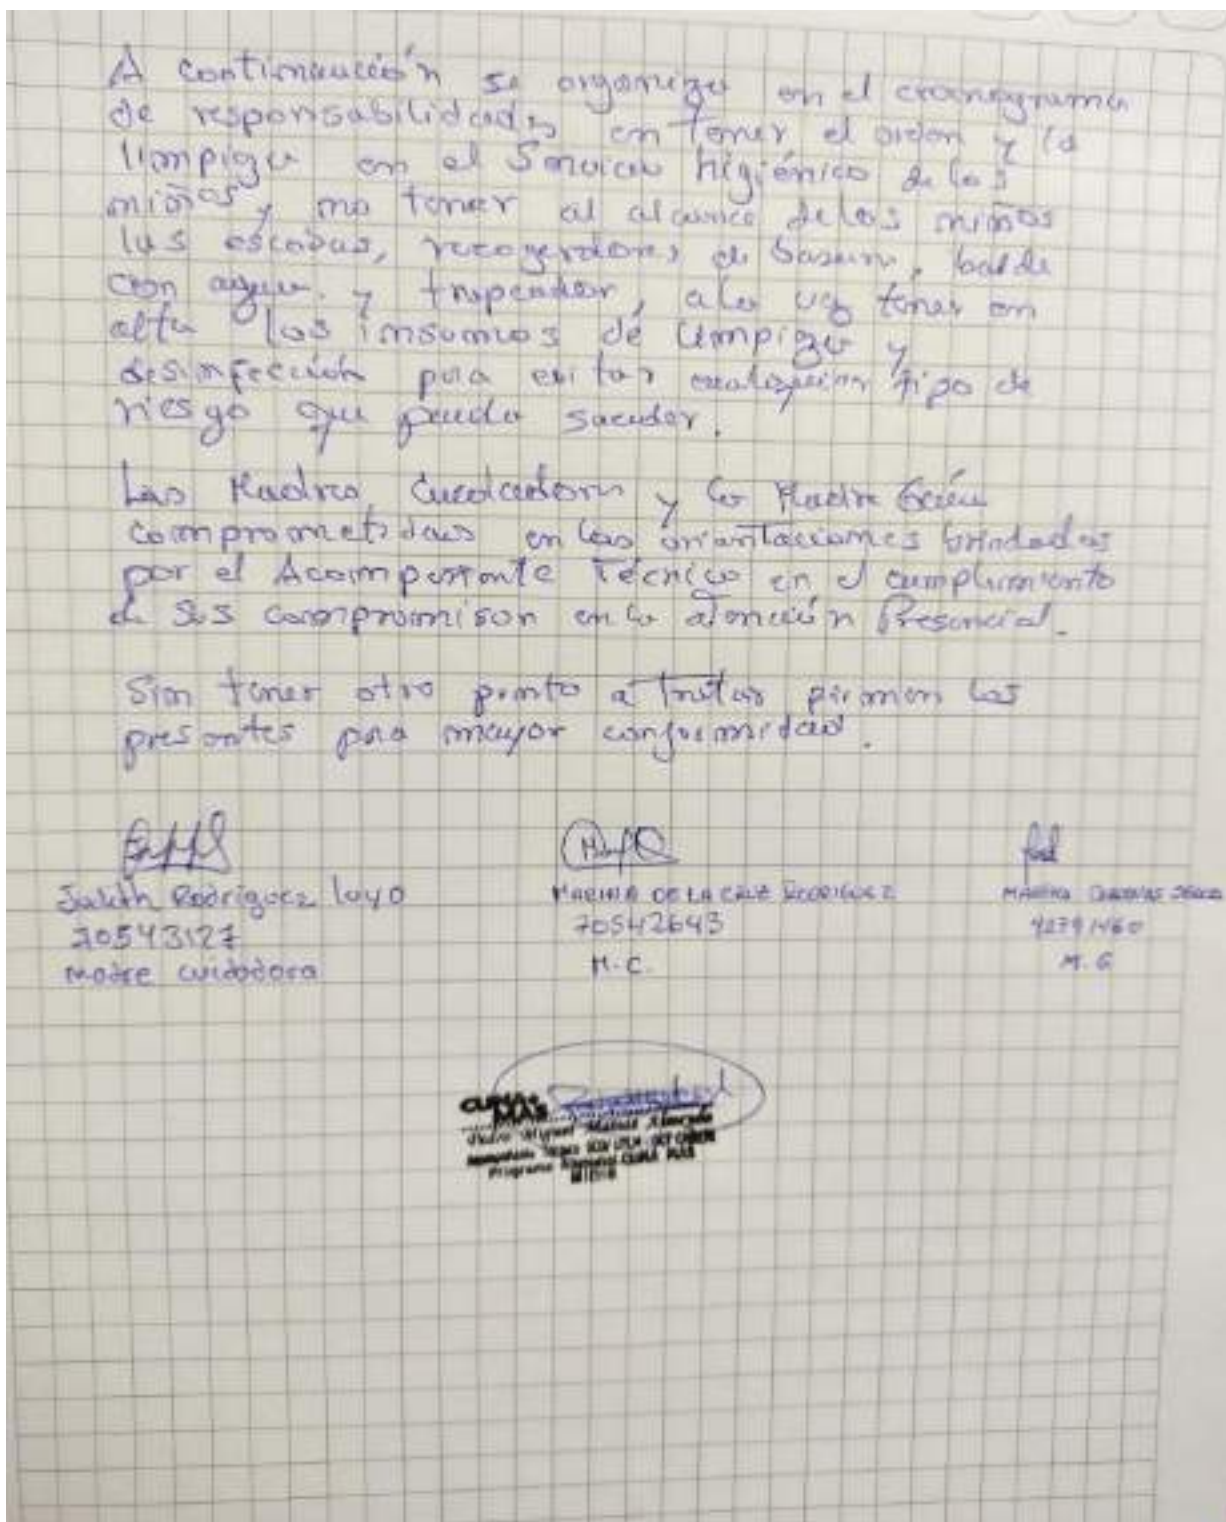 A continuación se organiza en el cronograma
de responsabilidades en tener el orden y la
limpieza en el Servicio higiénico de los
niños, no tener al alcance de los niños
las escobas, recogedores de basura, balde
con agua y trapeador, a la vez tener en
alto los insumos de limpieza y
desinfección para evitar cualquier tipo de
riesgo que pueda suceder.
Las Madres Cuidadoras y la Madre Guía
comprometidas en las orientaciones brindadas
por el Acompañante Técnico en el cumplimiento
de sus compromisos en la atención Presencial.
Sin tener otro punto a tratar firman los
presentes para mayor conformidad.
Judith Rodriguez Luyo
MARINA DE LA CRUZ RODRIGUEZ
MARINA CARDENAS
70543127
70542643
42791460
Madre cuidadora
M.C.
M.G
CUNA MAS
Programa Nacional CUNA MAS
MIDIS